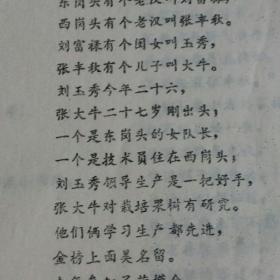 东岗头有个老汉叫刘富禄，
西岗头有个老汉叫张丰秋。
刘富禄有个闺女叫玉秀，
张丰秋有个儿子叫大牛。
刘玉秀今年二十六，
张大牛二十七岁刚出头；
一个是东岗头的女队长，
一个是技术員住在西岗头；
刘玉秀领导生产是一把好手，
张大牛对栽培果树有研究。
他们俩学习生产都先进，
金榜上面美名留。